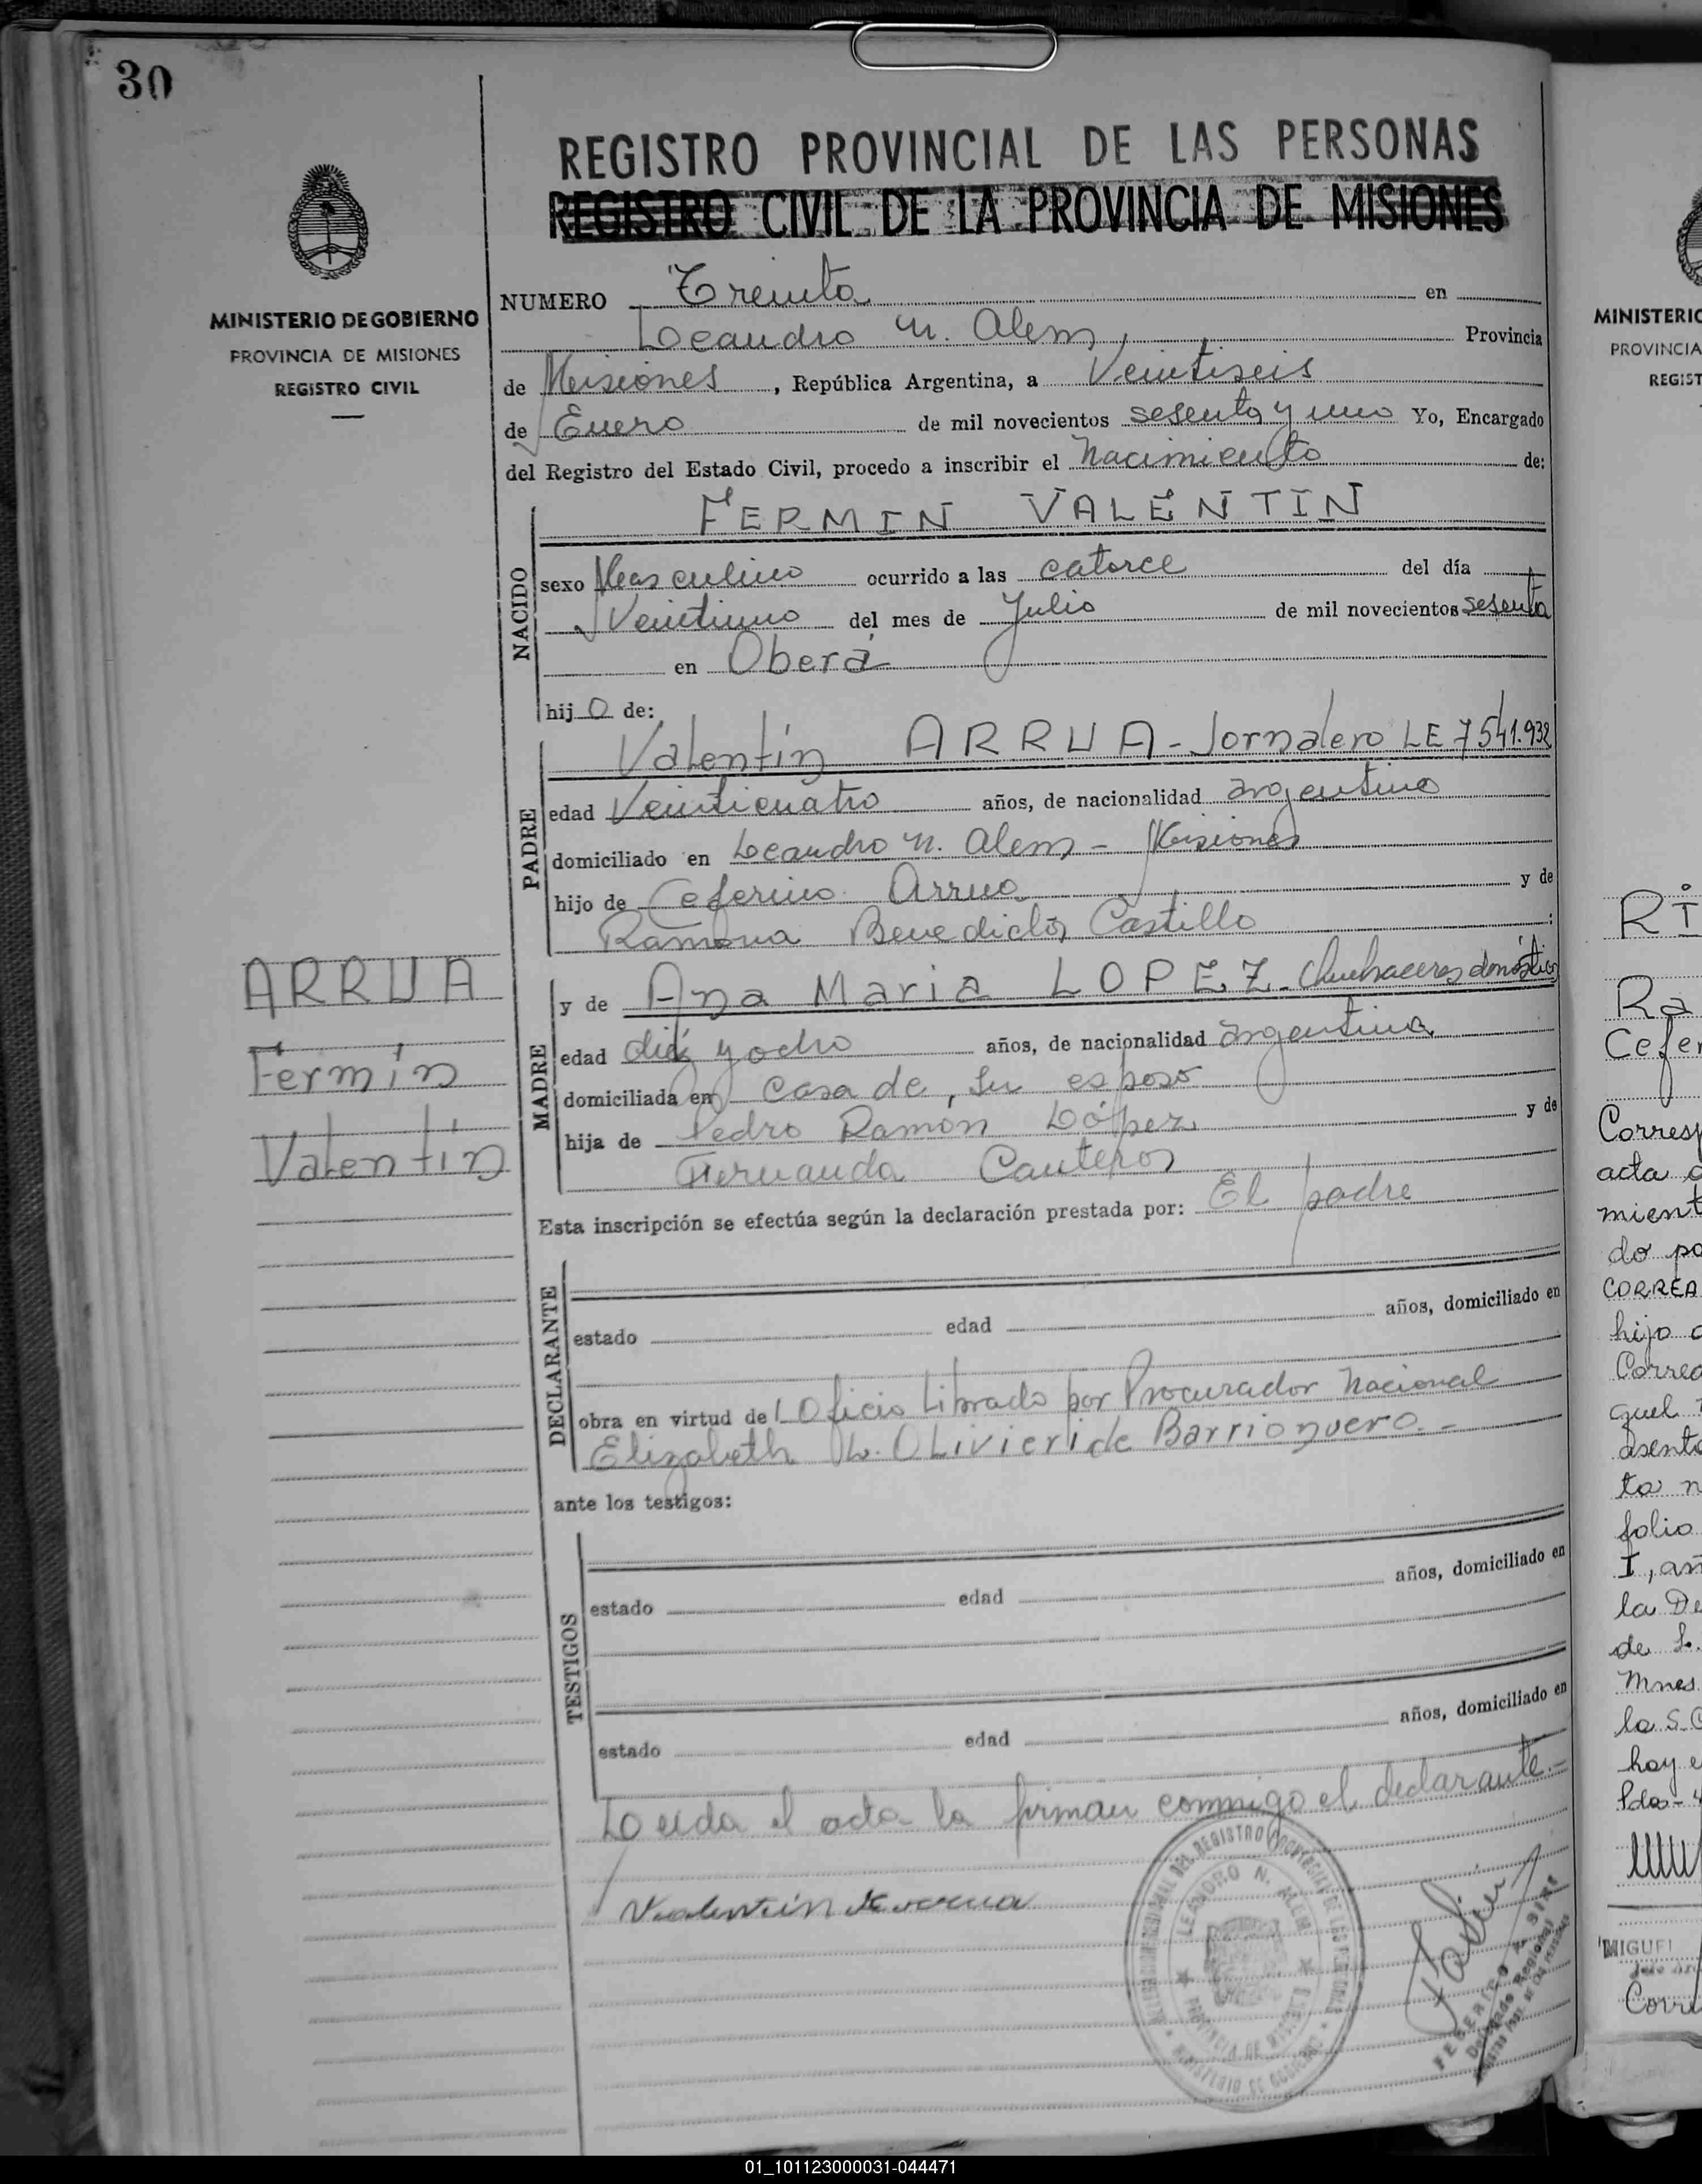 30
REGISTRO PROVINCIAL DE LAS PERSONAS
REGISTRO CIVIL DE LA PROVINCIA DE MISIONES
MINISTERIO DE GOBIERNO
PROVINCIA DE MISIONES
REGISTRO CIVIL
NUMERO Treinta en
Leandro N. Alem, Provincia
de Misiones, República Argentina, a Veintiseis
de Enero de mil novecientos sesenta y uno Yo, Encargado
del Registro del Estado Civil, procedo a inscribir el Nacimiento de:
NACIDO
FERMIN VALENTIN
sexo Masculino ocurrido a las catorce del día
Veintiuno del mes de Julio de mil novecientos sesenta
en Oberá
hijo de:
PADRE
Valentín ARRUA - Jornalero LE 7541.932
edad Veinticuatro años, de nacionalidad argentino
domiciliado en Leandro N. Alem - Misiones
hijo de Ceferino Arrua y de
Ramona Benedicta Castillo :
ARRUA
Fermín
Valentín
MADRE
y de Ana Maria LOPEZ - Quehaceres domésticos
edad diez y ocho años, de nacionalidad argentina
domiciliada en casa de su esposo
hija de Pedro Ramón López y de
Fernanda Canteros
Esta inscripción se efectúa según la declaración prestada por: El padre
DECLARANTE
estado edad años, domiciliado en
obra en virtud del Oficio Librado por Procurador Nacional
Elizabeth L. OLivieri de Barrionuevo.-
ante los testigos:
TESTIGOS
estado edad años, domiciliado en
estado edad años, domiciliado en
Leida el acta la firman conmigo el declarante.-
Valentin Arrua
LEANDRO N. ALEM
PROVINCIA DE MISIONES
MINISTERIO DE GOBIERNO
FEDERICO
Delegado Regional
MINISTERIO
PROVINCIA
REGIST
RI
Ra
Cefer
Corresp
acta
mient
do po
CORREA
hijo
Correa
quel
asenta
ta n
folio
I, añ
la De
de L.
Mnes
la S.C
hoy e
Pdas-
MIGUEL
Corr
01_101123000031-044471